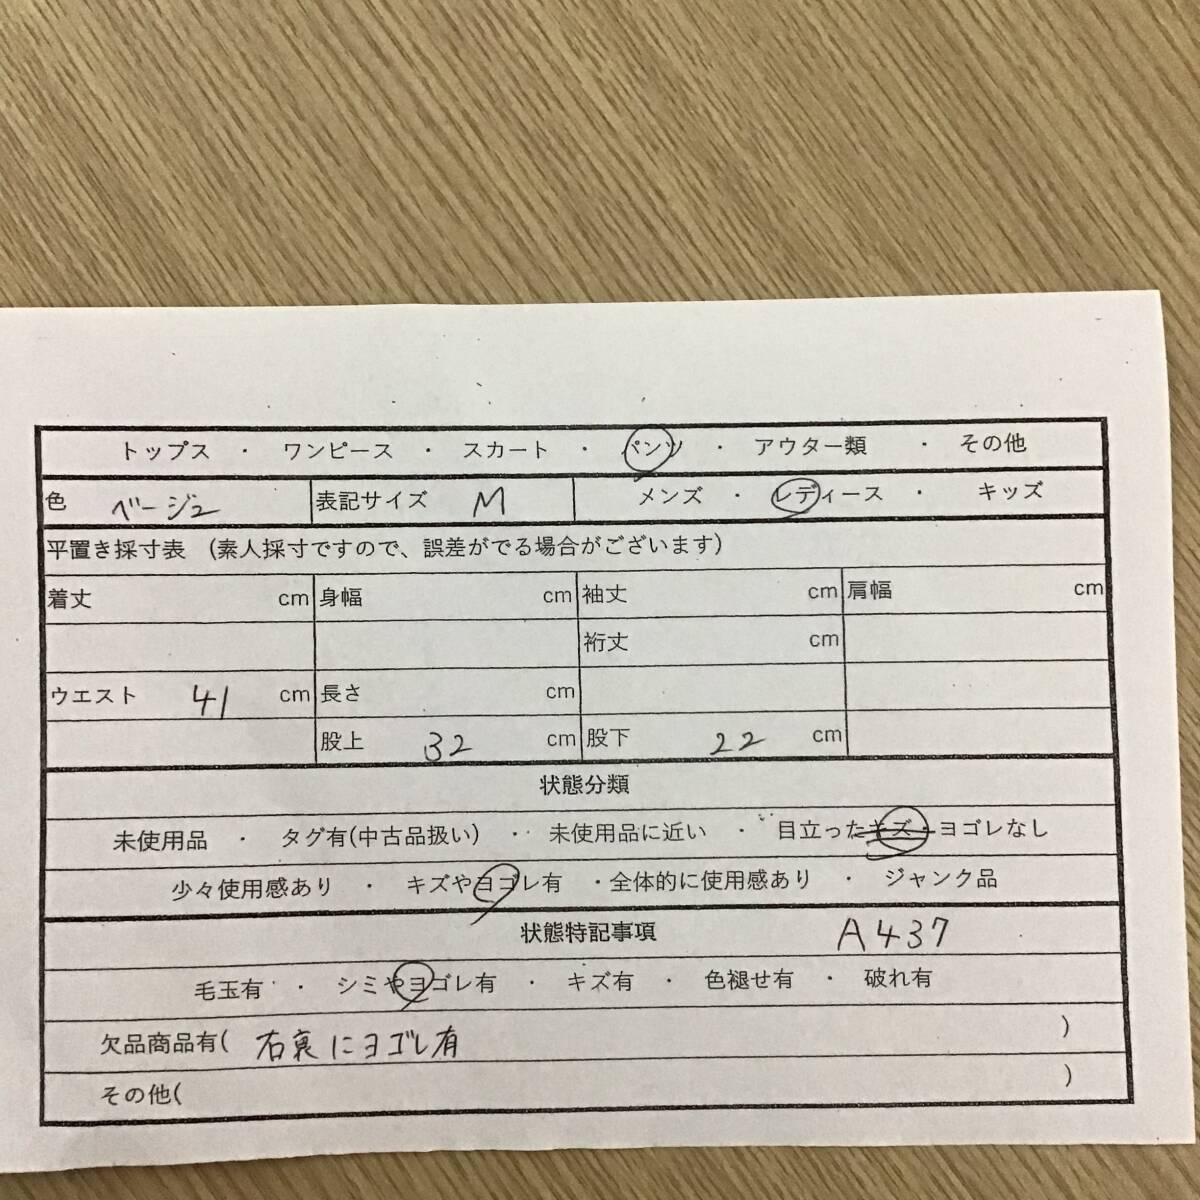 トップス ・ ワンピース ・ スカート ・ パンツ ・ アウター類 ・ その他
色 ベージュ 表記サイズ M メンズ ・ レディース ・ キッズ
平置き採寸表 (素人採寸ですので、誤差がでる場合がございます)
着丈 cm 身幅 cm 袖丈 cm 肩幅 cm
裄丈 cm
ウエスト 41 cm 長さ cm
股上 32 cm 股下 22 cm
状態分類
未使用品 ・ タグ有(中古品扱い) ・ 未使用品に近い ・ 目立ったキズ・ヨゴレなし
少々使用感あり ・ キズやヨゴレ有 ・全体的に使用感あり ・ ジャンク品
状態特記事項 A437
毛玉有 ・ シミやヨゴレ有 ・ キズ有 ・ 色褪せ有 ・ 破れ有
欠品商品有( 右裏にヨゴレ有 )
その他( )